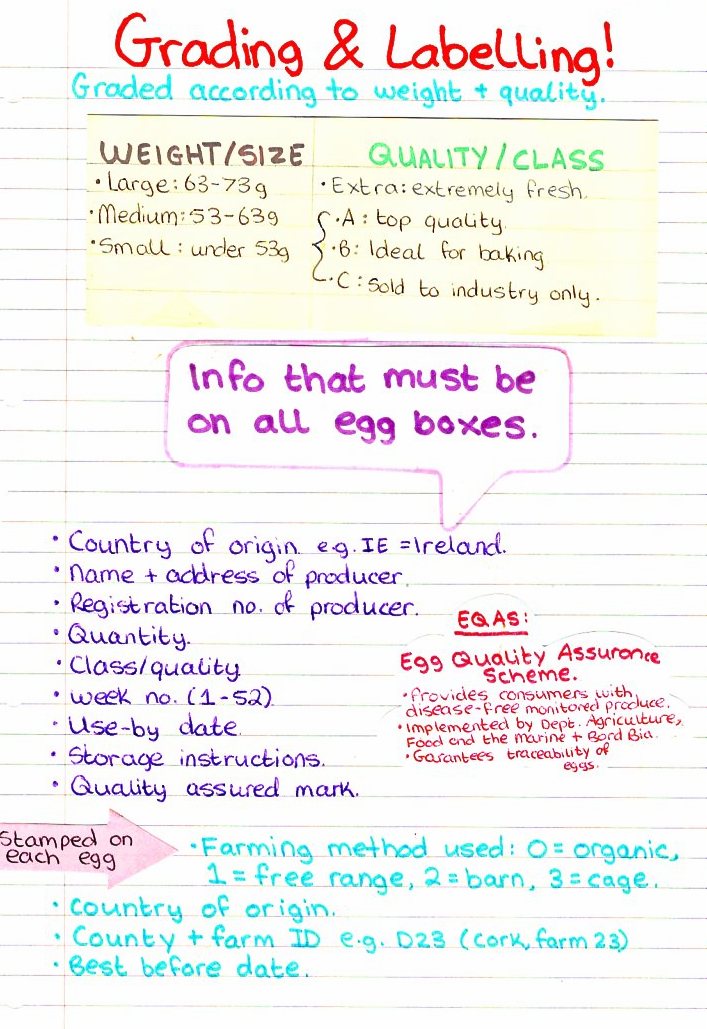 Grading & Labelling!
Graded according to weight + quality.
WEIGHT/SIZE
• Large: 63-73g
• Medium: 53-63g
• Small: under 53g
QUALITY/CLASS
• Extra: extremely fresh.
• A: top quality.
• B: Ideal for baking
• C: Sold to industry only.
Info that must be
on all egg boxes.
• Country of origin e.g. IE = Ireland.
• Name + address of producer.
• Registration no. of producer.
• Quantity.
• Class/quality
• week no. (1-52)
• Use-by date.
• Storage instructions.
• Quality assured mark.
EQAS:
Egg Quality Assurance
Scheme.
• Provides consumers with
disease-free monitored produce.
• Implemented by Dept. Agriculture,
Food and the marine + Bord Bia.
• Garantees traceability of
eggs.
Stamped on
each egg
• Farming method used: 0 = organic,
1 = free range, 2 = barn, 3 = cage.
• Country of origin.
• County + farm ID e.g. D23 (Cork, farm 23)
• Best before date.